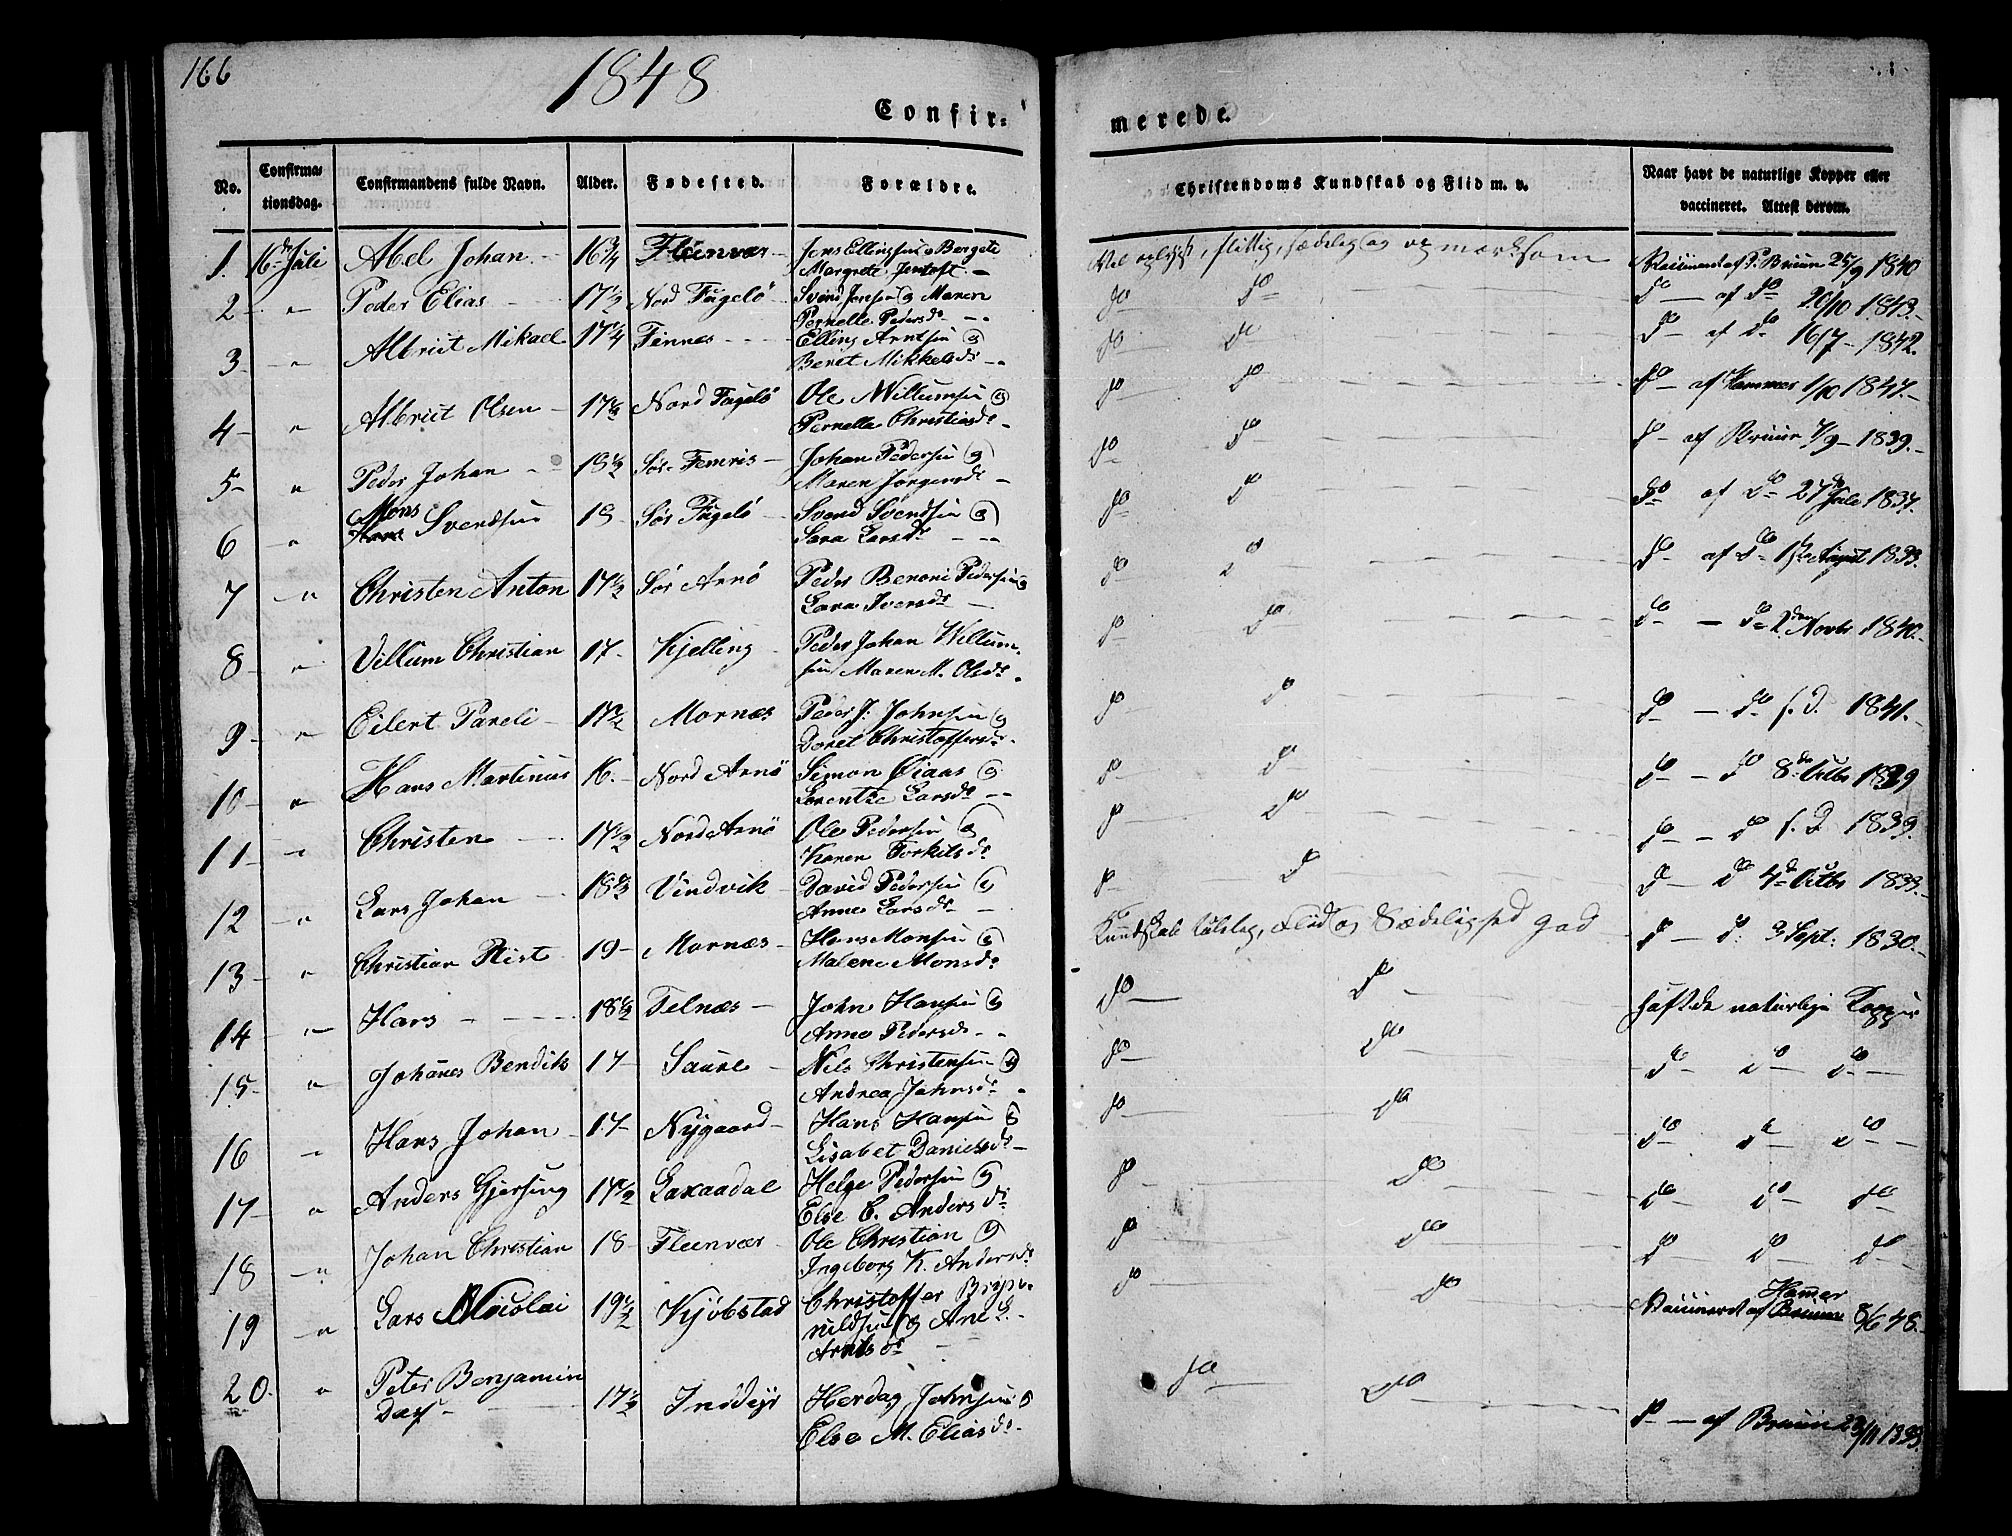 166
1848
Confir-
merede.
No.
Confirma-
tionsdag.
Confirmandens fulde Navn.
Alder.
Fødested.
Forældre.
Christendoms Kundskab og Flid m. v.
Naar havt de naturlige Kopper eller
vaccineret. Attest derom.
1. 16de Juli Abel Johan 16 3/4 Fleenvær Jens Ellingsen Bergete
Margrete Jentoft
Vel oplyst, flittig, sædelig og opmærksom
af P. Bruun 25/9 1840
2 " Peder Elias 17 1/2 Nord Fugelö Svend Jensen og Maren
Pernelle Pedersdr
do do do af do 20/10 1843.
3 " Albrict Mikael 17 Finnæs Elling Arntsen og
Beret Mikkelsdr
do do do af do 16/7 1842.
4 " Albrict Olsen 17 1/2 Nord Fugelö Ole Willumsen og
Pernella Christiansdr
do do do af Hammer 1/10 1847.
5 " Peder Johan Sör Femris Johan Pedersen og
Maren Jørgensdr
do do do af Bruun 7/9 1839.
6 " Mons Svendsen 19 Sör Fugelö Svend Svendsen og
Sara Larsdr
do do do af do 27de Juli 1837.
7 " Christen Anton 17 1/2 Sör Arnö Peder Benoni Pedersen og
Lara Iversdr
do do do af do August 1833.
8 " Villum Christian 17 Kjelling Peder Johan Willum-
sen Maren M. Olsdr
do do do do 2den Novbr 1840.
9 " Eilert Pareli 17 1/2 Mornæs Peder J. Johnsen og
Doret Christoffersdr
do do do do s. D. 1841.
10 " Hans Martinus 16. Nord Arnö Simon Öiaas og
Lorentze Larsdr
do do do do 8de Octbr 1839
11 " Christen 17 1/2 Nord Arnö Ole Pedersen og
Karen Torkilsdr
do do do do s. D 1839.
12 " Lars Johan 18 1/2 Vindvik David Pedersen og
Anne Larsdr
do do do do 4de Octbr 1833.
13 " Christian Rist 19 Mornæs Hans Monsen og
Malene Monsdr
Kundskab taalelig, Flid og Sædelighed god
do do 3 Sept: 1830.
14 " Hans 18 1/2 Felnæs John Hansen og
Anne Pedersdr
do do haft de naturlige Kopper
15 " Johanes Bendik 17 Saure Nils Christensen og
Andrea Johnsdr
do do do do do
16 " Hans Johan 17 Nygaard Hans Hansen og
Lisabet Danielsdr
do do do do do
17 " Anders Gjersing 17 1/2 Laxaadal Helge Pedersen og
Else C. Andersdr
do do do do do
18 " Johan Christian 18 Fleenvær Ole Christian og
Ingeborg K. Andersdr
do do do do do
19 " Lars Nicolai 19 1/2 Kjöbstad Christoffer Bryn-
nildsen og Ane L.
Arntsdr
do do Vaccineret af Bruun Hamer 8/6 48.
20. " Peter Benjamin
Dass
17 1/2 Inödyr Herdag Johnsen og
Else M. Eliasdr
do do do af Bruun 23/11 1833.